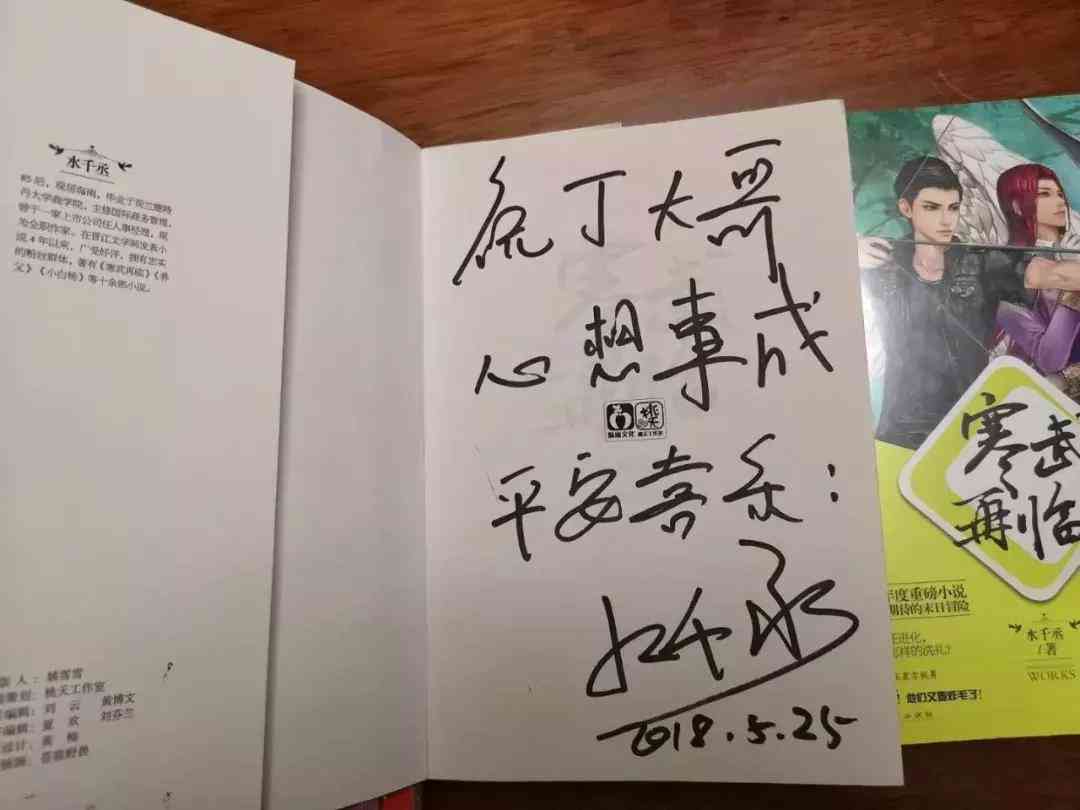 水千丞
师范，现居海南，毕业于
丹大学商学院，主修国际商务管理，
曾于一家上市公司任人事经理，现
为全职作家。在晋江文学网发表小
说4年以来，广受好评，拥有忠实
的粉丝群体，著有《寒武再临》《养
父》《小白杨》等十余部小说。
版人：
策划：桃夭工作室
编辑：刘云 黄博文
编辑：夏欢 刘芬兰
设计：
插画：
庖丁大哥
心想事成
桃夭工作室
平安喜乐：
水千丞
2018.5.25
寒武
再临
年度重磅小说
期待的末日冒险
进化，
怎样的洗礼？
水千丞
/著
WORKS
他们又要炸毛了！
出版社